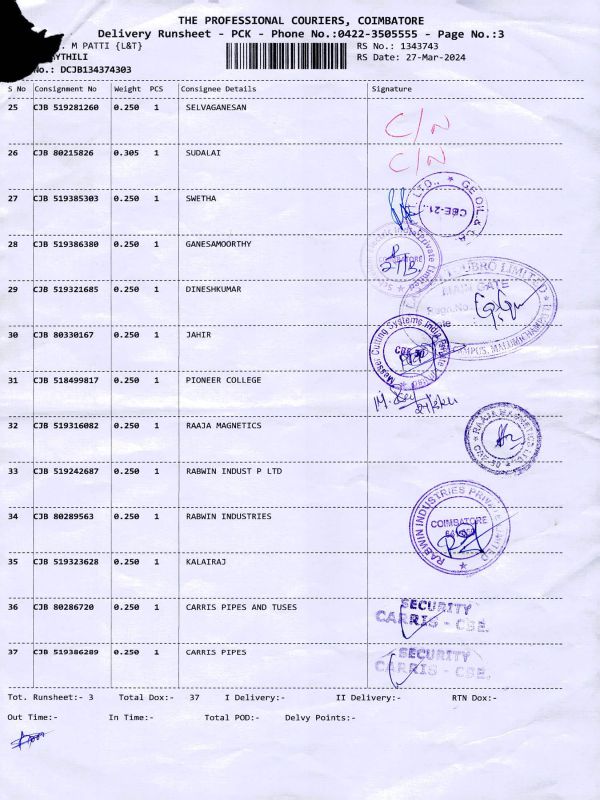 THE PROFESSIONAL COURIERS, COIMBATORE
Delivery Runsheet - PCK - Phone No.:0422-3505555 - Page No.:3
. M PATTI {L&T}
RS No.: 1343743
YTHILI
RS Date: 27-Mar-2024
No.: DCJB134374303
S No Consignment No Weight PCS Consignee Details Signature
25 CJB 519281260 0.250 1 SELVAGANESAN
C/N
26 CJB 80215826 0.305 1 SUDALAI
C/N
27 CJB 519385303 0.250 1 SWETHA
LTD., ★ GE OIL &
CBE-21
28 CJB 519386380 0.250 1 GANESAMOORTHY
29 CJB 519321685 0.250 1 DINESHKUMAR
UBRO LIMITED
MAIN GATE
CAMPUS, MALUMICHAMP
30 CJB 80330167 0.250 1 JAHIR
Messer Cutting Systems India Private
31 CJB 518499817 0.250 1 PIONEER COLLEGE
32 CJB 519316082 0.250 1 RAAJA MAGNETICS
RAAJA MAGNETICS LTD
33 CJB 519242687 0.250 1 RABWIN INDUST P LTD
34 CJB 80289563 0.250 1 RABWIN INDUSTRIES
RABWIN INDUSTRIES PRIVATE LIMITED
COIMBATORE
35 CJB 519323628 0.250 1 KALAIRAJ
36 CJB 80286720 0.250 1 CARRIS PIPES AND TUSES
SECURITY
CARRIS - CBE.
37 CJB 519386289 0.250 1 CARRIS PIPES
SECURITY
CARRIS - CBE.
Tot. Runsheet:- 3 Total Dox:- 37 I Delivery:- II Delivery:- RTN Dox:-
Out Time:- In Time:- Total POD:- Delvy Points:-